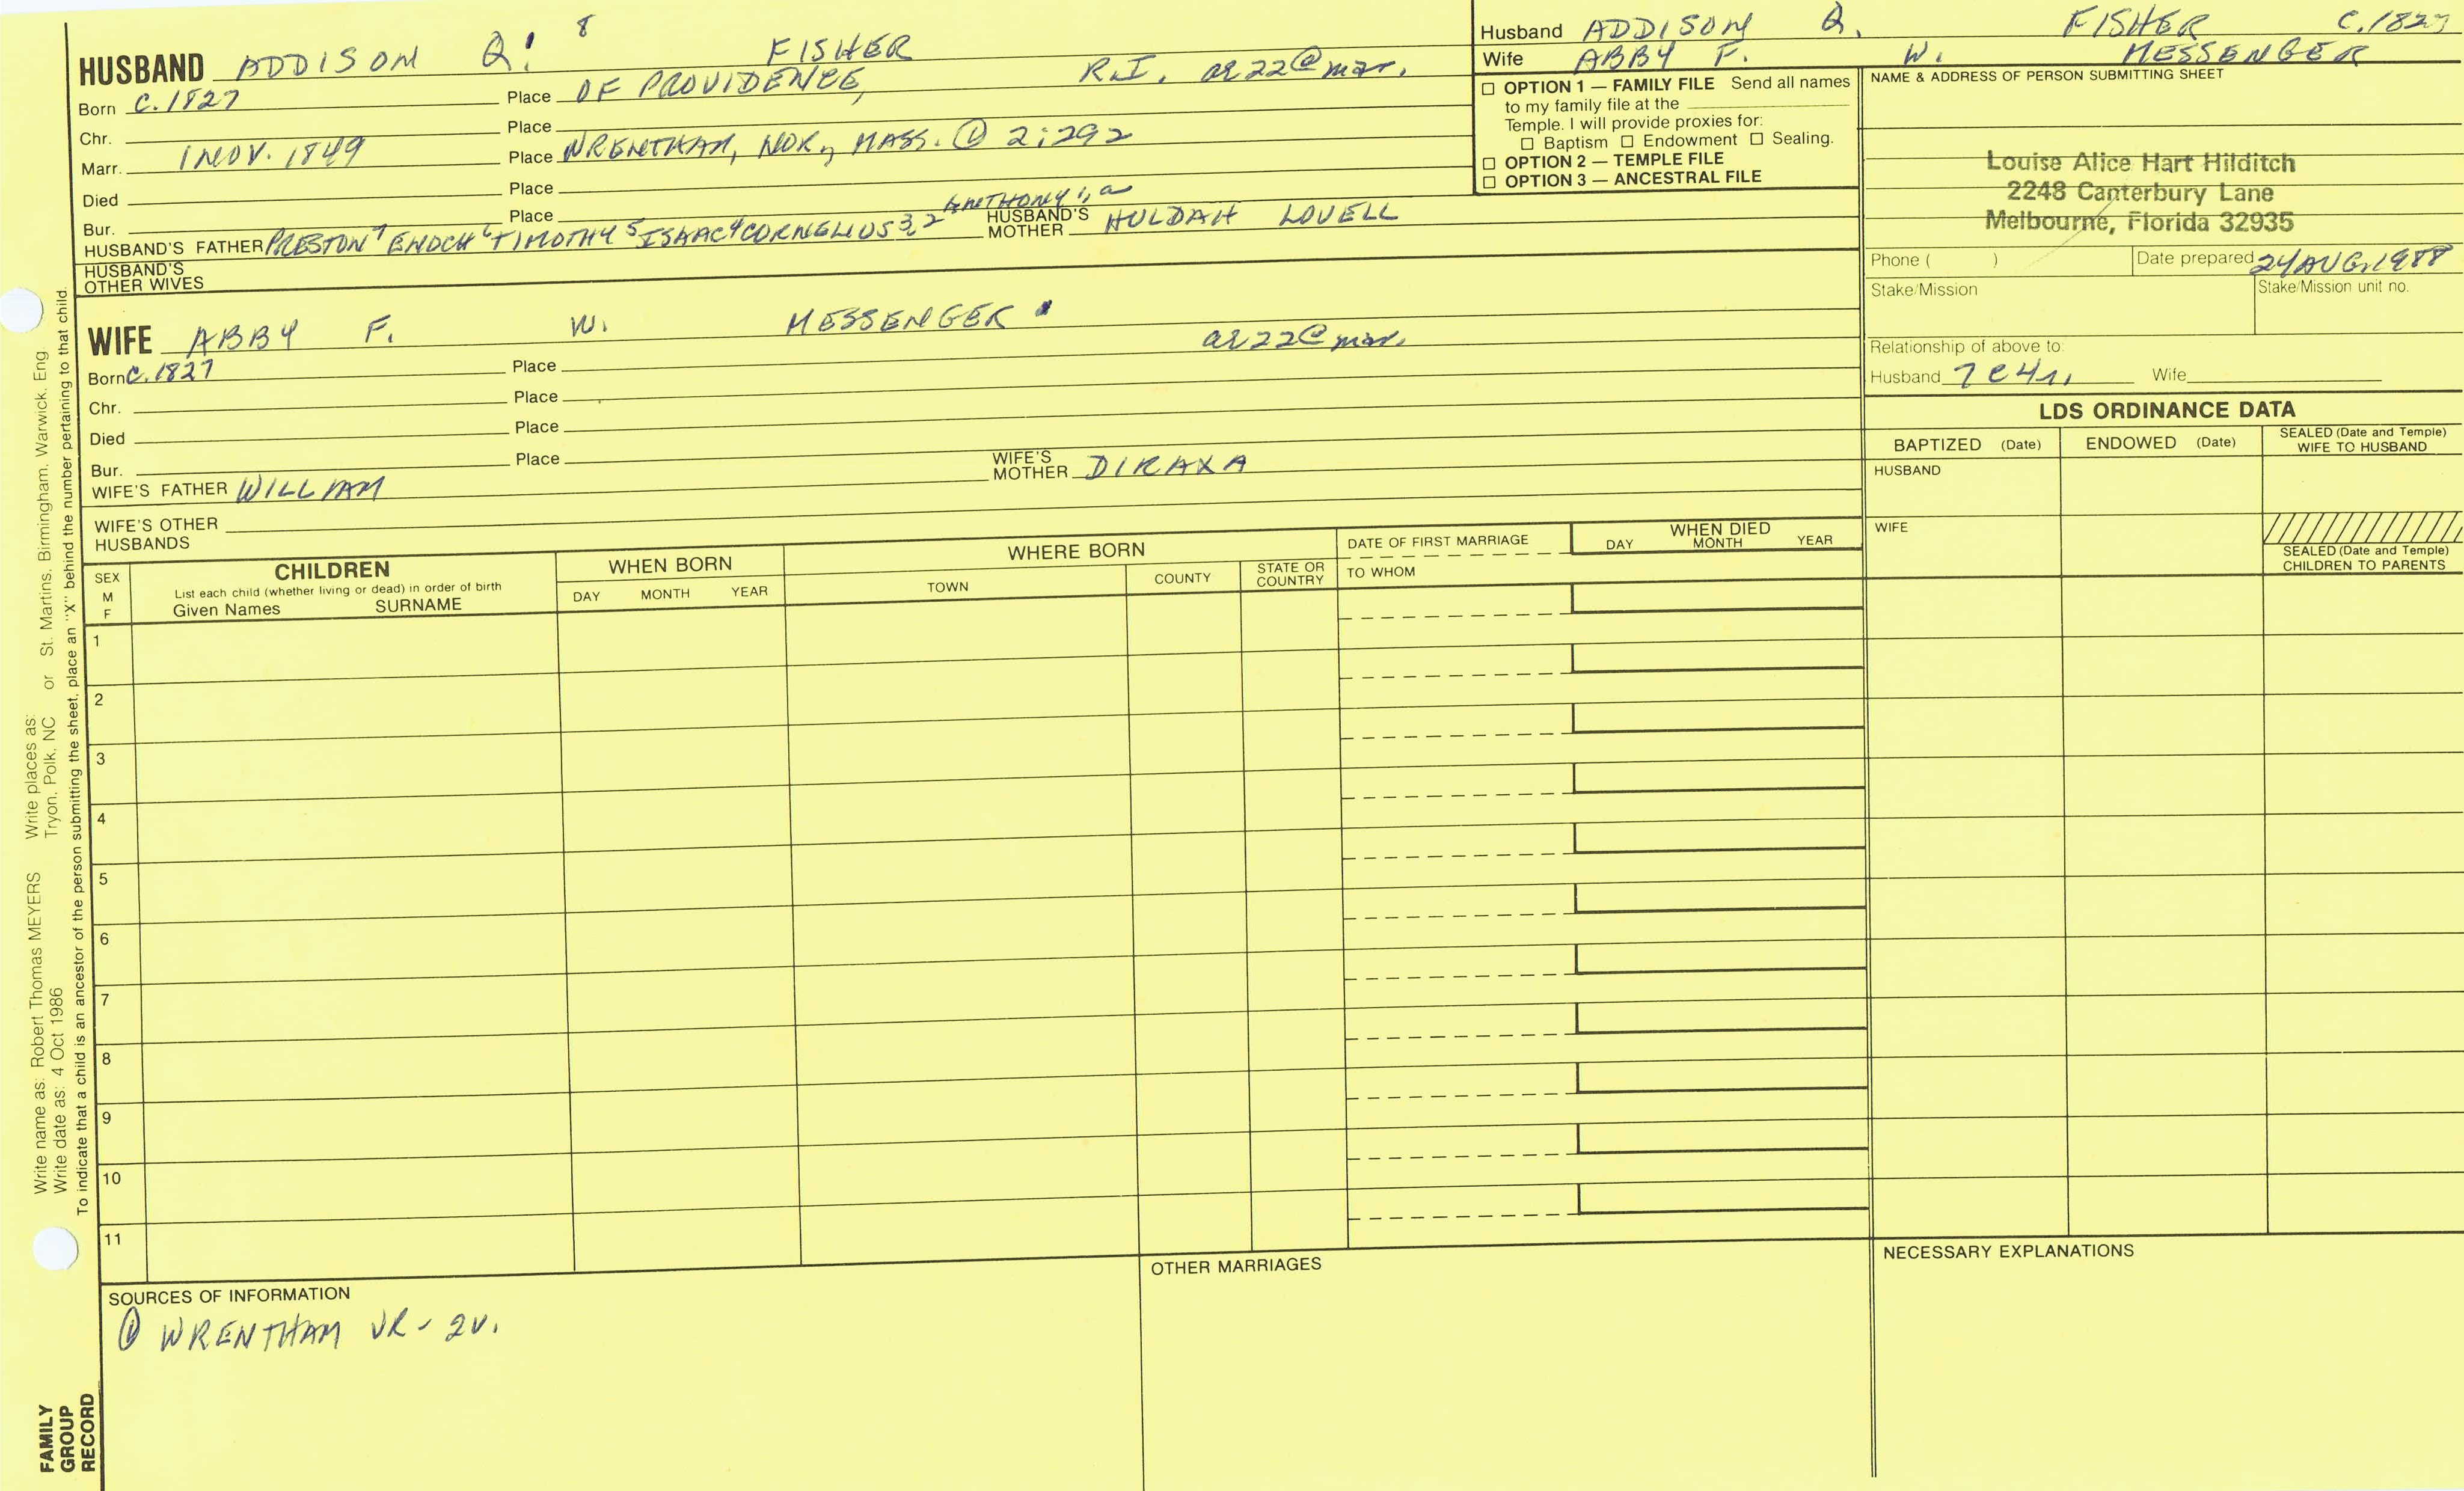 HUSBAND ADDISON Q. 8 FISHER
Born C.1827 Place OF PROVIDENCE, R.I. ae 22 @ mar.
Chr. Place
Marr. 1 NOV. 1849 Place WRENTHAM, NOR., MASS. ① 2:292
Died Place
Bur. Place
HUSBAND'S FATHER PRESTON 7 ENOCH 6 TIMOTHY 5 ISAAC 4 CORNELIUS 3,2 ANTHONY 1,a HUSBAND'S MOTHER HULDAH LOVELL
HUSBAND'S OTHER WIVES
WIFE ABBY F. W. MESSENGER
Born C.1827 Place ae 22 @ mar.
Chr. Place
Died Place
Bur. Place
WIFE'S FATHER WILLIAM WIFE'S MOTHER DIRAXA
WIFE'S OTHER HUSBANDS
Husband ADDISON Q. FISHER C.1827
Wife ABBY F. W. MESSENGER
☐ OPTION 1 — FAMILY FILE Send all names
to my family file at the
Temple. I will provide proxies for:
☐ Baptism ☐ Endowment ☐ Sealing.
☐ OPTION 2 — TEMPLE FILE
☐ OPTION 3 — ANCESTRAL FILE
NAME & ADDRESS OF PERSON SUBMITTING SHEET
Louise Alice Hart Hilditch
2248 Canterbury Lane
Melbourne, Florida 32935
Phone ( ) Date prepared 24 AUG. 1988
Stake/Mission Stake/Mission unit no.
Relationship of above to:
Husband 7C4r. Wife
LDS ORDINANCE DATA
BAPTIZED (Date) ENDOWED (Date) SEALED (Date and Temple) WIFE TO HUSBAND
HUSBAND
WIFE
SEALED (Date and Temple)
CHILDREN TO PARENTS
SEX M F
CHILDREN
List each child (whether living or dead) in order of birth
Given Names SURNAME
WHEN BORN
DAY MONTH YEAR
WHERE BORN
TOWN COUNTY STATE OR COUNTRY
DATE OF FIRST MARRIAGE
TO WHOM
WHEN DIED
DAY MONTH YEAR
1
2
3
4
5
6
7
8
9
10
11
SOURCES OF INFORMATION
① WRENTHAM VR - 2V.
OTHER MARRIAGES
NECESSARY EXPLANATIONS
Write name as: Robert Thomas MEYERS Write places as: or St. Martins, Birmingham, Warwick, Eng.
Write date as: 4 Oct 1986 Tryon, Polk, NC
To indicate that a child is an ancestor of the person submitting the sheet, place an "X" behind the number pertaining to that child.
FAMILY
GROUP
RECORD